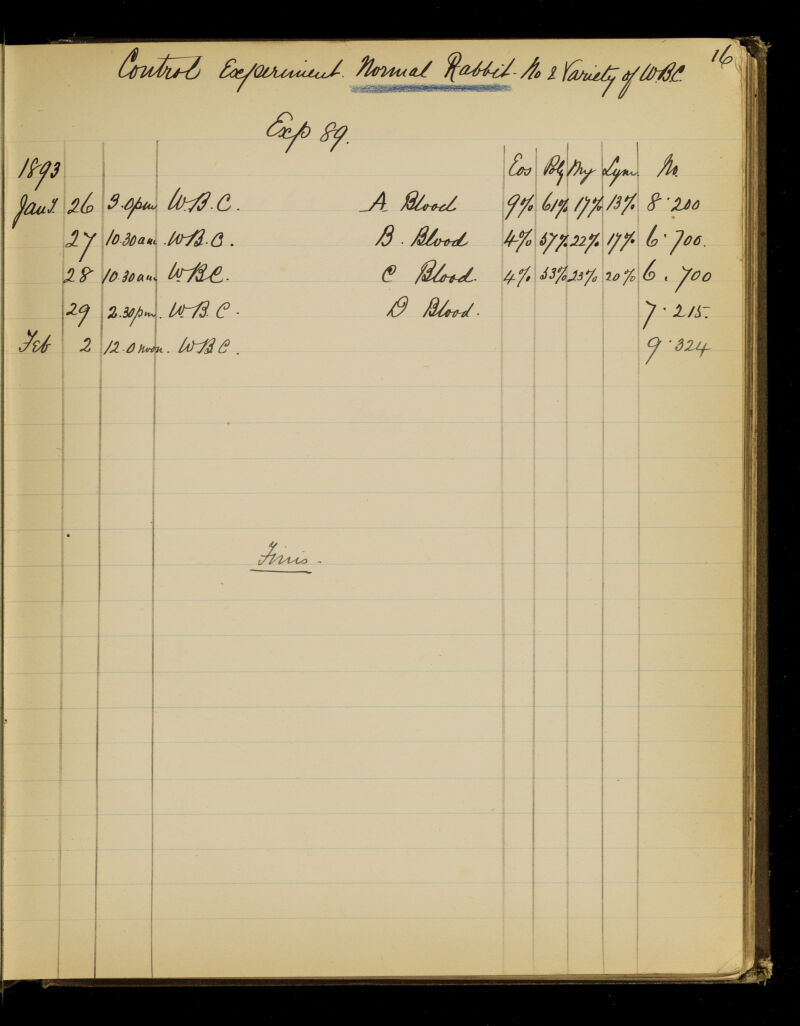 16
Control Experiment. Normal Rabbit. No & Variety of WBC
Exp 89.
1893 Eos Poly My Lym No
Jany. 26 3.0pm W.B.C. A Blood 9% 61% 17% 13% 8.200
27 10.30am. W.B.C. B. Blood 4% 57% 22% 17% 6.700.
28 10.30am WBC. C Blood. 4% 53% 23% 20% 6.700
29 2.30pm. W.B.C. D Blood. 7.215.
Feb 2 12.0 noon. WBC. 9.324
Finis.